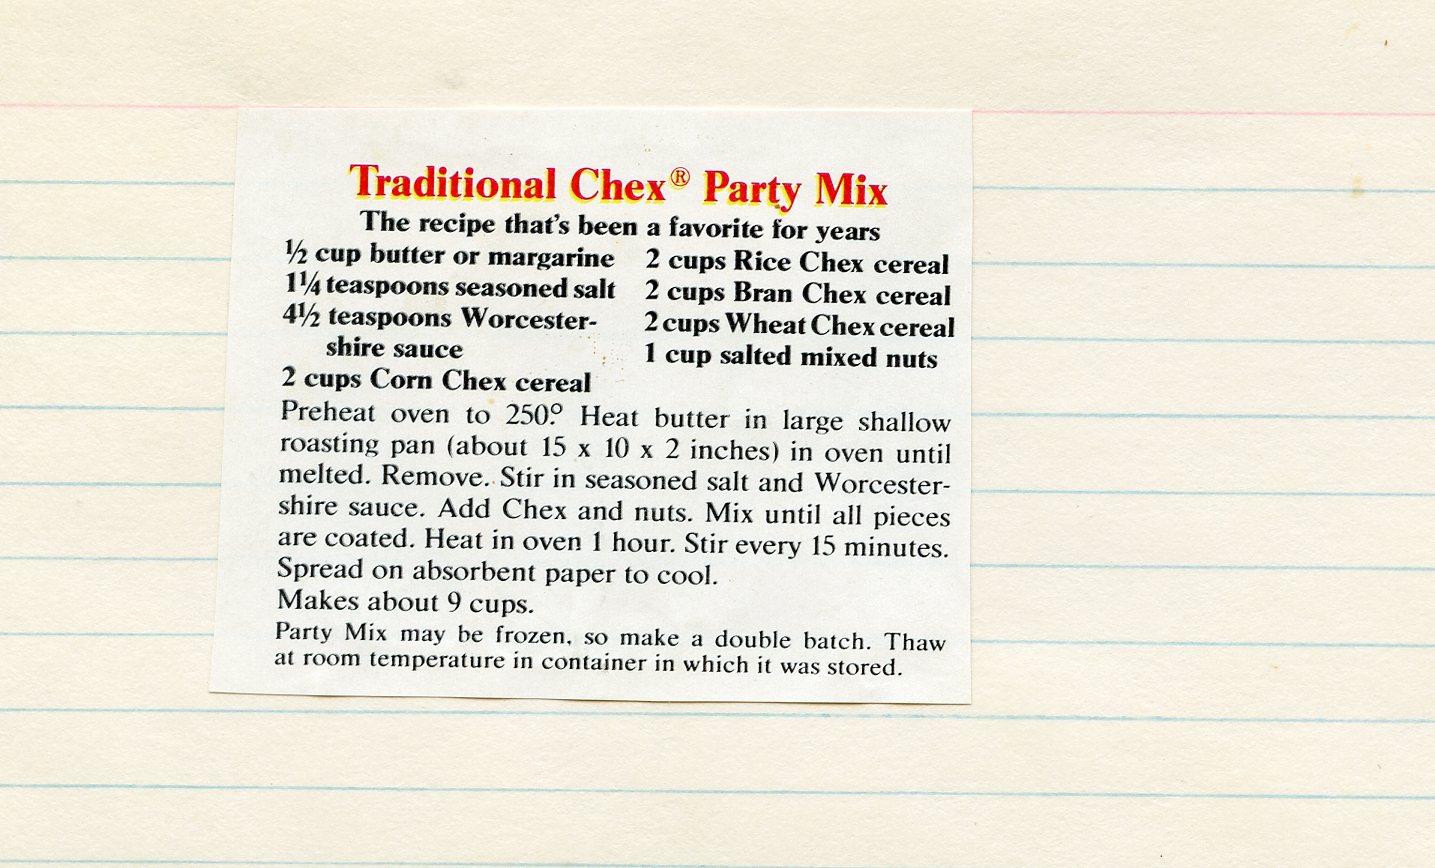 Traditional Chex® Party Mix
The recipe that's been a favorite for years
½ cup butter or margarine
1¼ teaspoons seasoned salt
4½ teaspoons Worcester-
shire sauce
2 cups Corn Chex cereal
2 cups Rice Chex cereal
2 cups Bran Chex cereal
2 cups Wheat Chex cereal
1 cup salted mixed nuts
Preheat oven to 250°. Heat butter in large shallow
roasting pan (about 15 x 10 x 2 inches) in oven until
melted. Remove. Stir in seasoned salt and Worcester-
shire sauce. Add Chex and nuts. Mix until all pieces
are coated. Heat in oven 1 hour. Stir every 15 minutes.
Spread on absorbent paper to cool.
Makes about 9 cups.
Party Mix may be frozen, so make a double batch. Thaw
at room temperature in container in which it was stored.